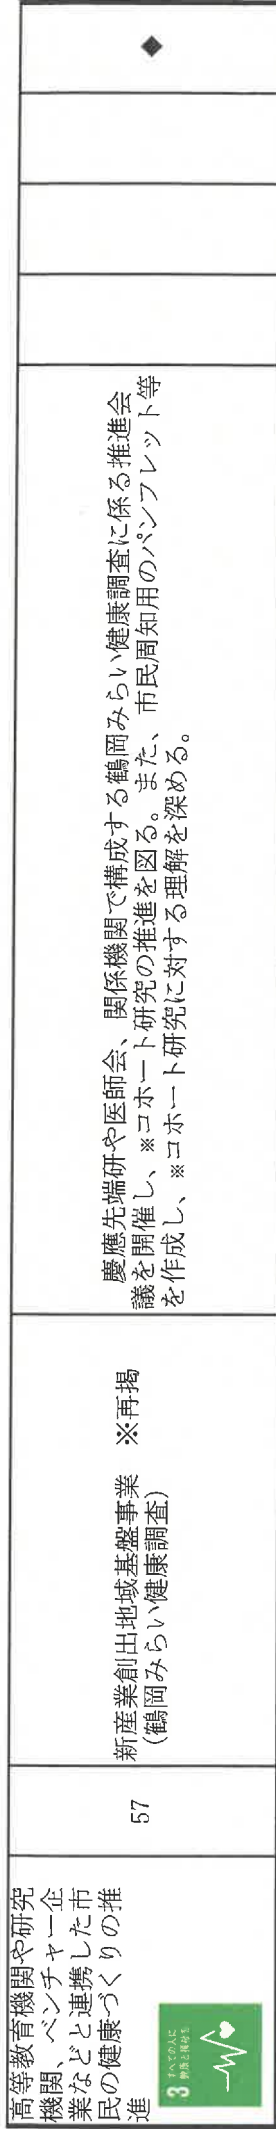 高等教育機関や研究
機関、ベンチャー企
業などと連携した市
民の健康づくりの推
進
3 すべての人に
健康と福祉を
57
新産業創出地域基盤事業　※再掲
(鶴岡みらい健康調査)
慶應先端研や医師会、関係機関で構成する鶴岡みらい健康調査に係る推進会
議を開催し、※コホート研究の推進を図る。また、市民周知用のパンフレット等
を作成し、※コホート研究に対する理解を深める。
◆